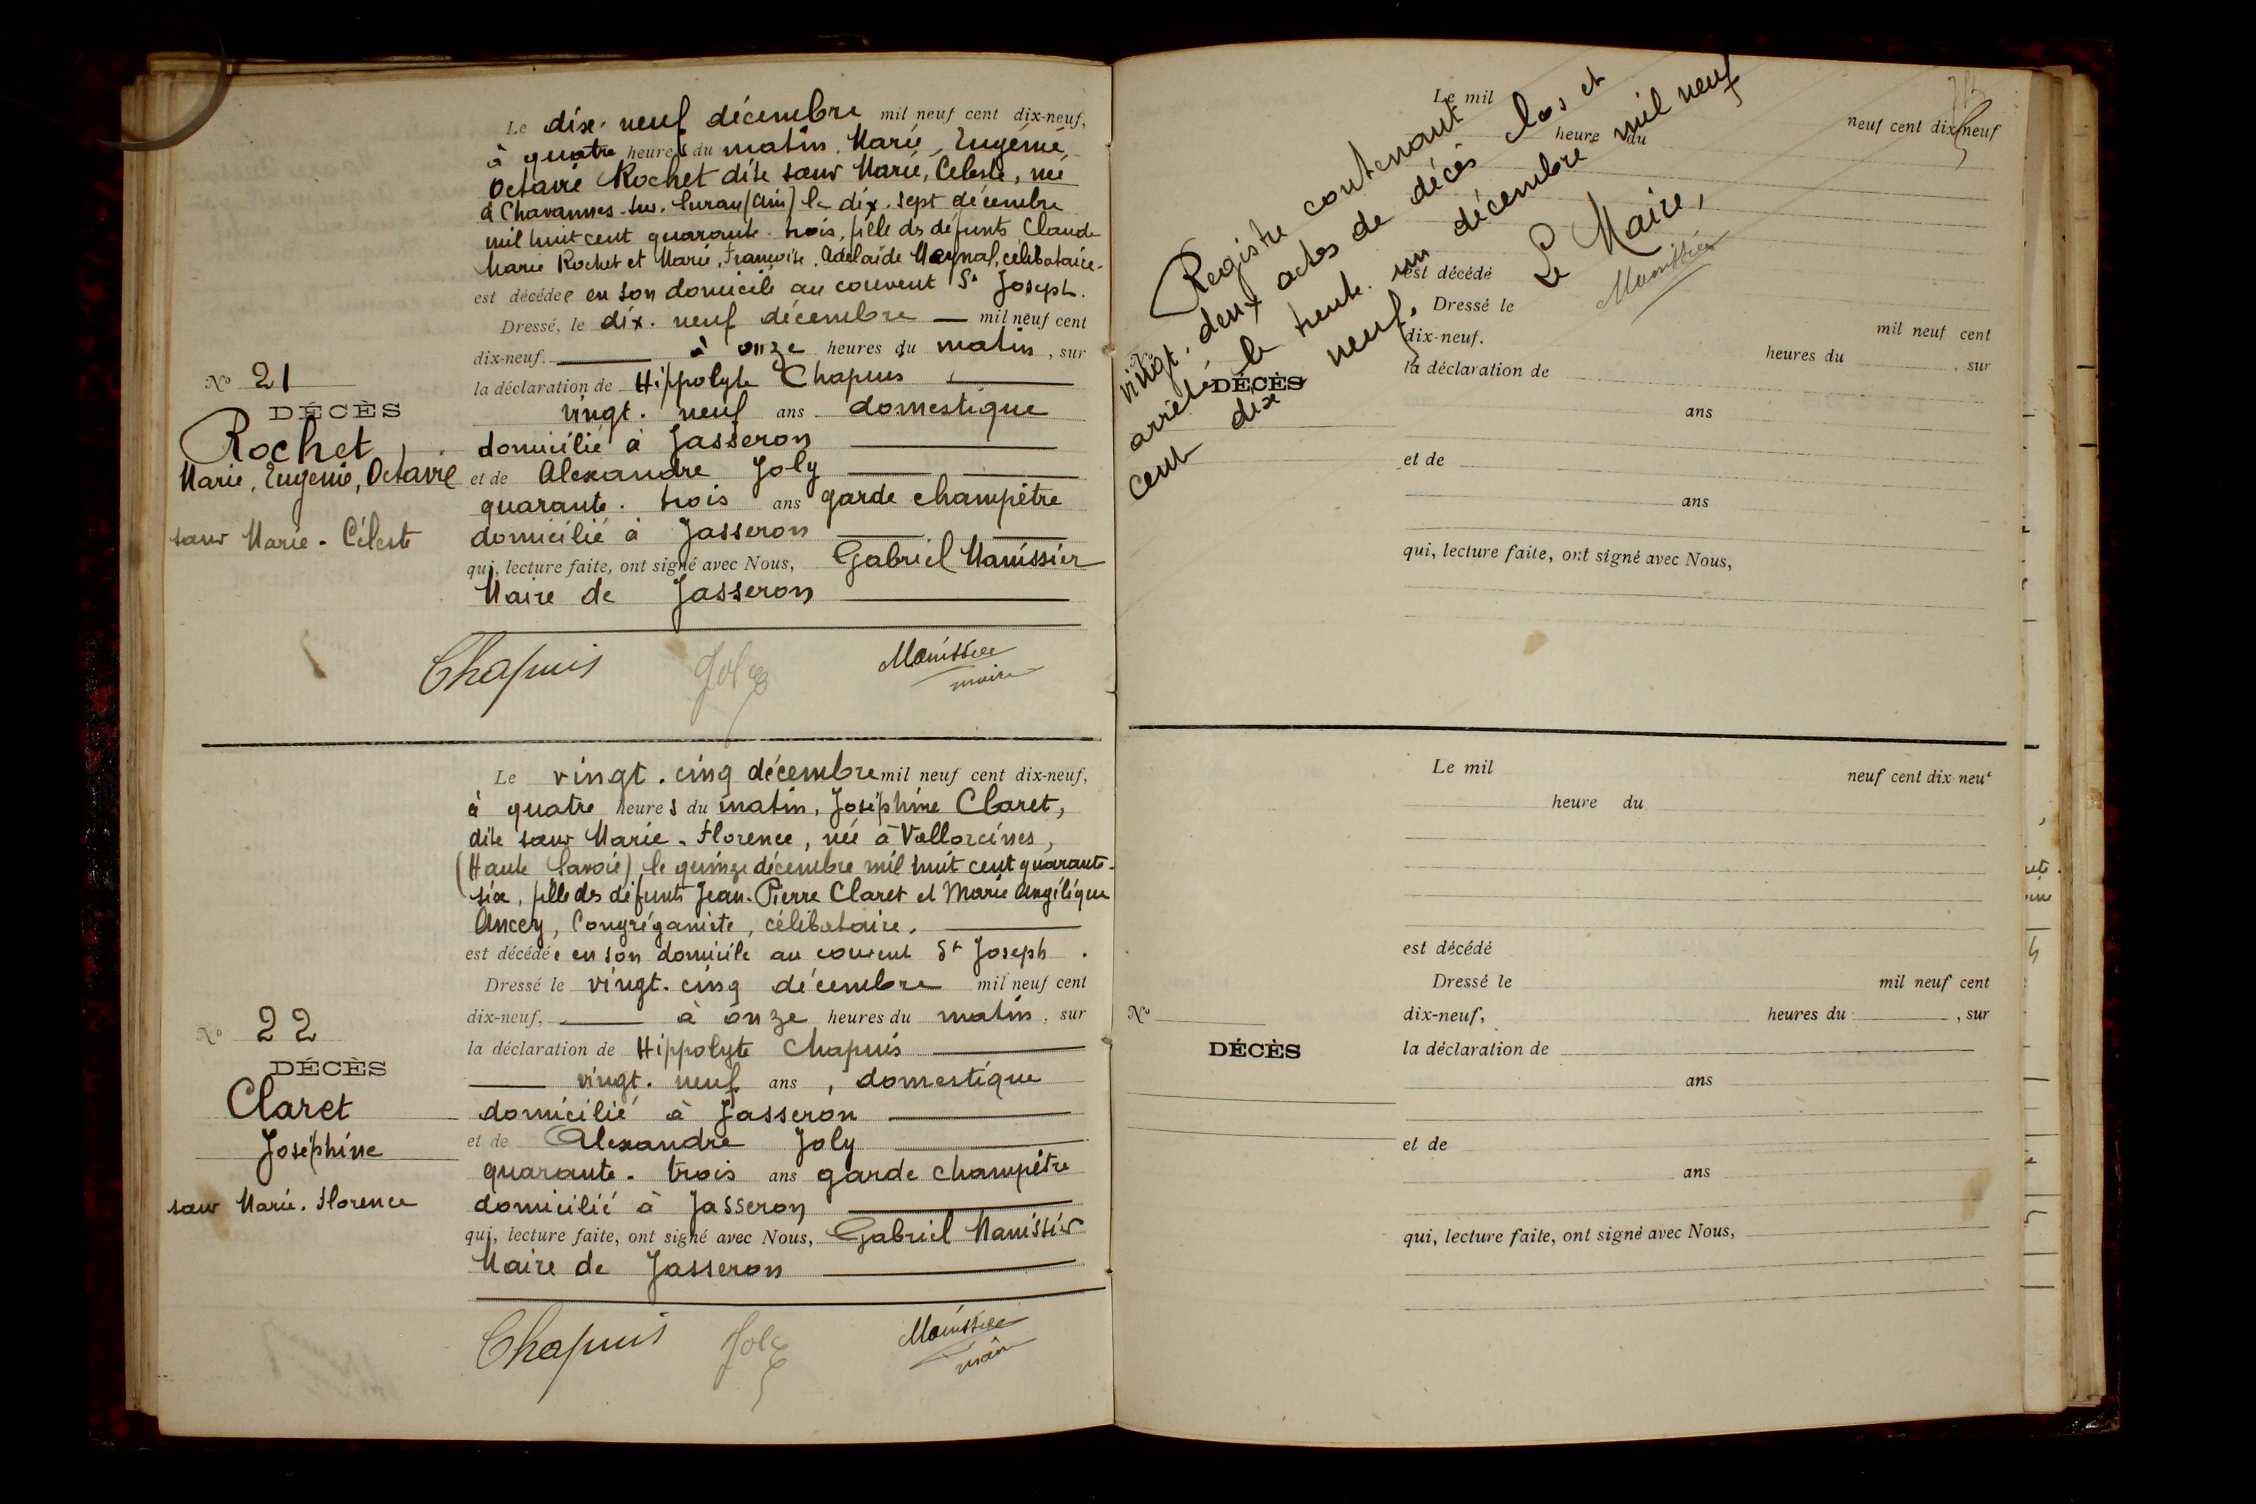 Le dix. neuf décembre mil neuf cent dix-neuf,
à quatre heures du matin, Marie, Eugénie,
Octavie Rochet dite sœur Marie, Céleste, née
à Chavannes-sur-Suran (Ain) le dix. sept décembre
mil huit cent quarante. trois, fille des défunts Claude
Marie Rochet et Marie, Françoise, Adélaïde Maynal, célibataire-
est décédée en son domicile au couvent St Joseph.
Dressé, le dix. neuf décembre mil neuf cent
dix-neuf. à onze heures du matin, sur
No 21
la déclaration de Hippolyte Chapuis
DÉCÈS
vingt. neuf ans domestique
Rochet
domicilié à Jasseron
Marie, Eugénie, Octavie
et de Alexandre Joly
quarante. trois ans garde champêtre
sœur Marie-Céleste
domicilié à Jasseron
qui, lecture faite, ont signé avec Nous, Gabriel Manissier
Maire de Jasseron
Chapuis Joly Manissier
maire
Le vingt. cinq décembre mil neuf cent dix-neuf,
à quatre heures du matin, Joséphine Claret,
dite sœur Marie-Florence, née à Vallorcines,
(Haute Savoie), le quinze décembre mil huit cent quarante-
six, fille des défunts Jean-Pierre Claret et Marie Angélique
Ancey, Congréganiste, célibataire.
est décédée en son domicile au couvent St Joseph.
Dressé le vingt. cinq décembre mil neuf cent
dix-neuf, à onze heures du matin, sur
No 22
la déclaration de Hippolyte Chapuis
DÉCÈS
vingt. neuf ans, domestique
Claret
domicilié à Jasseron
Joséphine
et de Alexandre Joly
quarante. trois ans garde champêtre
sœur Marie. Florence
domicilié à Jasseron
qui, lecture faite, ont signé avec Nous, Gabriel Manissier
Maire de Jasseron
Chapuis Joly Manissier
maire
Registre contenant
vingt. deux actes de décès clos et
arrêté le trente. un décembre mil neuf
cent dix neuf.
Le Maire,
Manissier
Le mil neuf cent dix neuf
heure du
est décédé
Dressé le mil neuf cent
dix-neuf. heures du , sur
No
la déclaration de
DÉCÈS
ans
et de
ans
qui, lecture faite, ont signé avec Nous,
Le mil neuf cent dix neuf
heure du
est décédé
Dressé le mil neuf cent
No
dix-neuf, heures du , sur
DÉCÈS
la déclaration de
ans
et de
ans
qui, lecture faite, ont signé avec Nous,